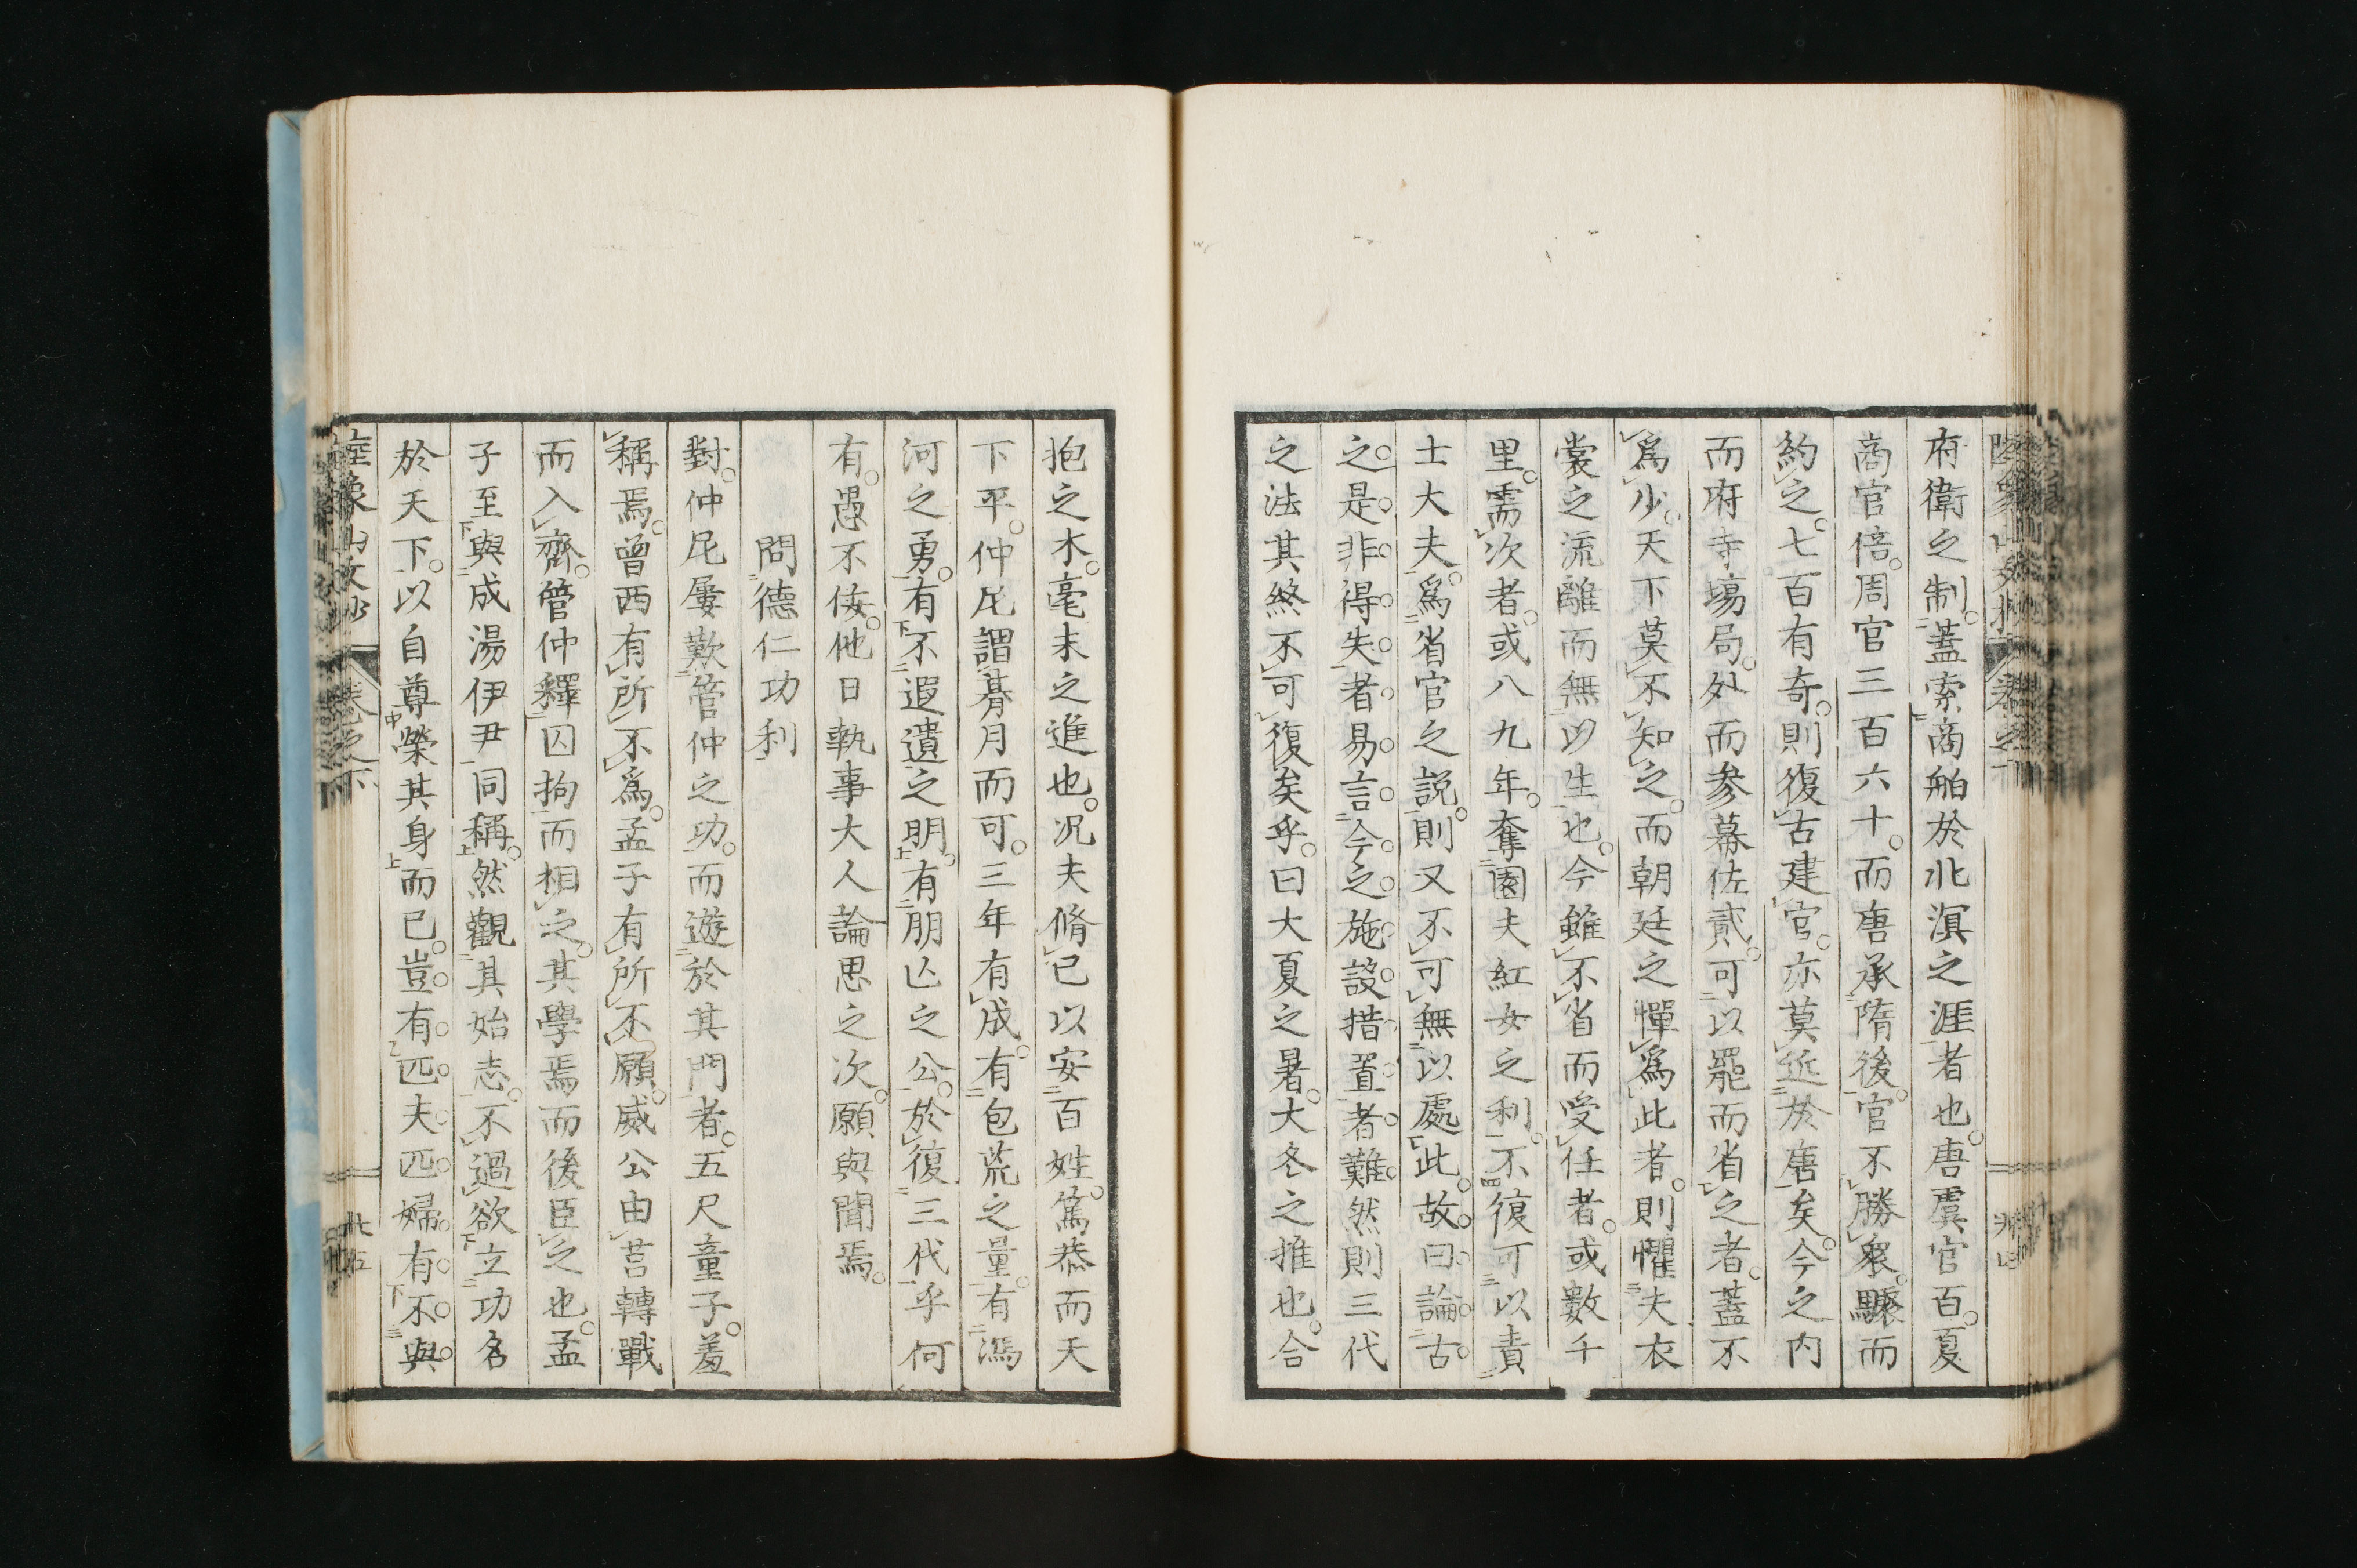 府衛之制蓋索商舶於北溟之涯者也唐虞官百夏
商官倍周官三百六十而唐承隋後官不勝衆驟而
約之七百有奇則復古建官亦莫近於唐矣今之内
而府寺塲局外而參幕佐貳可以罷而省之者蓋不
爲少天下莫不知之而朝廷之憚爲此者則懼夫衣
裳之流離而無以生也今雖不省而受任者或數千
里需次者或八九年奪園夫紅女之利不復可以責
士大夫爲省官之説則又不可無以處此故曰論古
之是非得失者易言今之施設措置者難然則三代
之法其終不可復矣乎曰大夏之暑大冬之推也合
抱之木毫末之進也况夫脩已以安百姓篤恭而天
下平仲尼謂朞月而可三年有成有包荒之量有馮
河之勇有不遐遺之明有朋亾之公於復三代乎何
有愚不佞他日執事大人論思之次願與聞焉
問德仁功利
對仲尼屢歎管仲之功而遊於其門者五尺童子羞
稱焉曾西有所不爲孟子有所不願威公由莒轉戰
而入齊管仲釋囚拘而相之其學焉而後臣之也孟
子至與成湯伊尹同稱然觀其始志不過欲立功名
於天下以自尊榮其身而已豈有匹夫匹婦有不與
陸象山文抄 卷之下 廿五